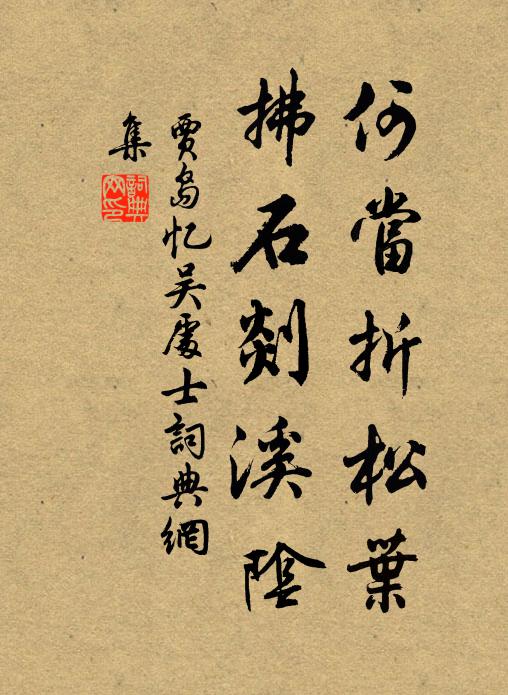 何當折松葉
拂石剡溪陰
賈島忆吴處士詞典網
集
詞典
网印